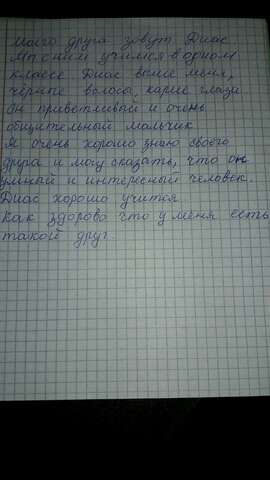 Моего друга зовут Диас
Мы с ним учимся в одном
классе Диас выше меня,
чёрные волосы, карие глаза.
Он приветливый и очень
общительный мальчик
Я очень хорошо знаю своего
друга и могу сказать, что он
умный и интересный человек.
Диас хорошо учится
Как здорово что у меня есть
такой друг.